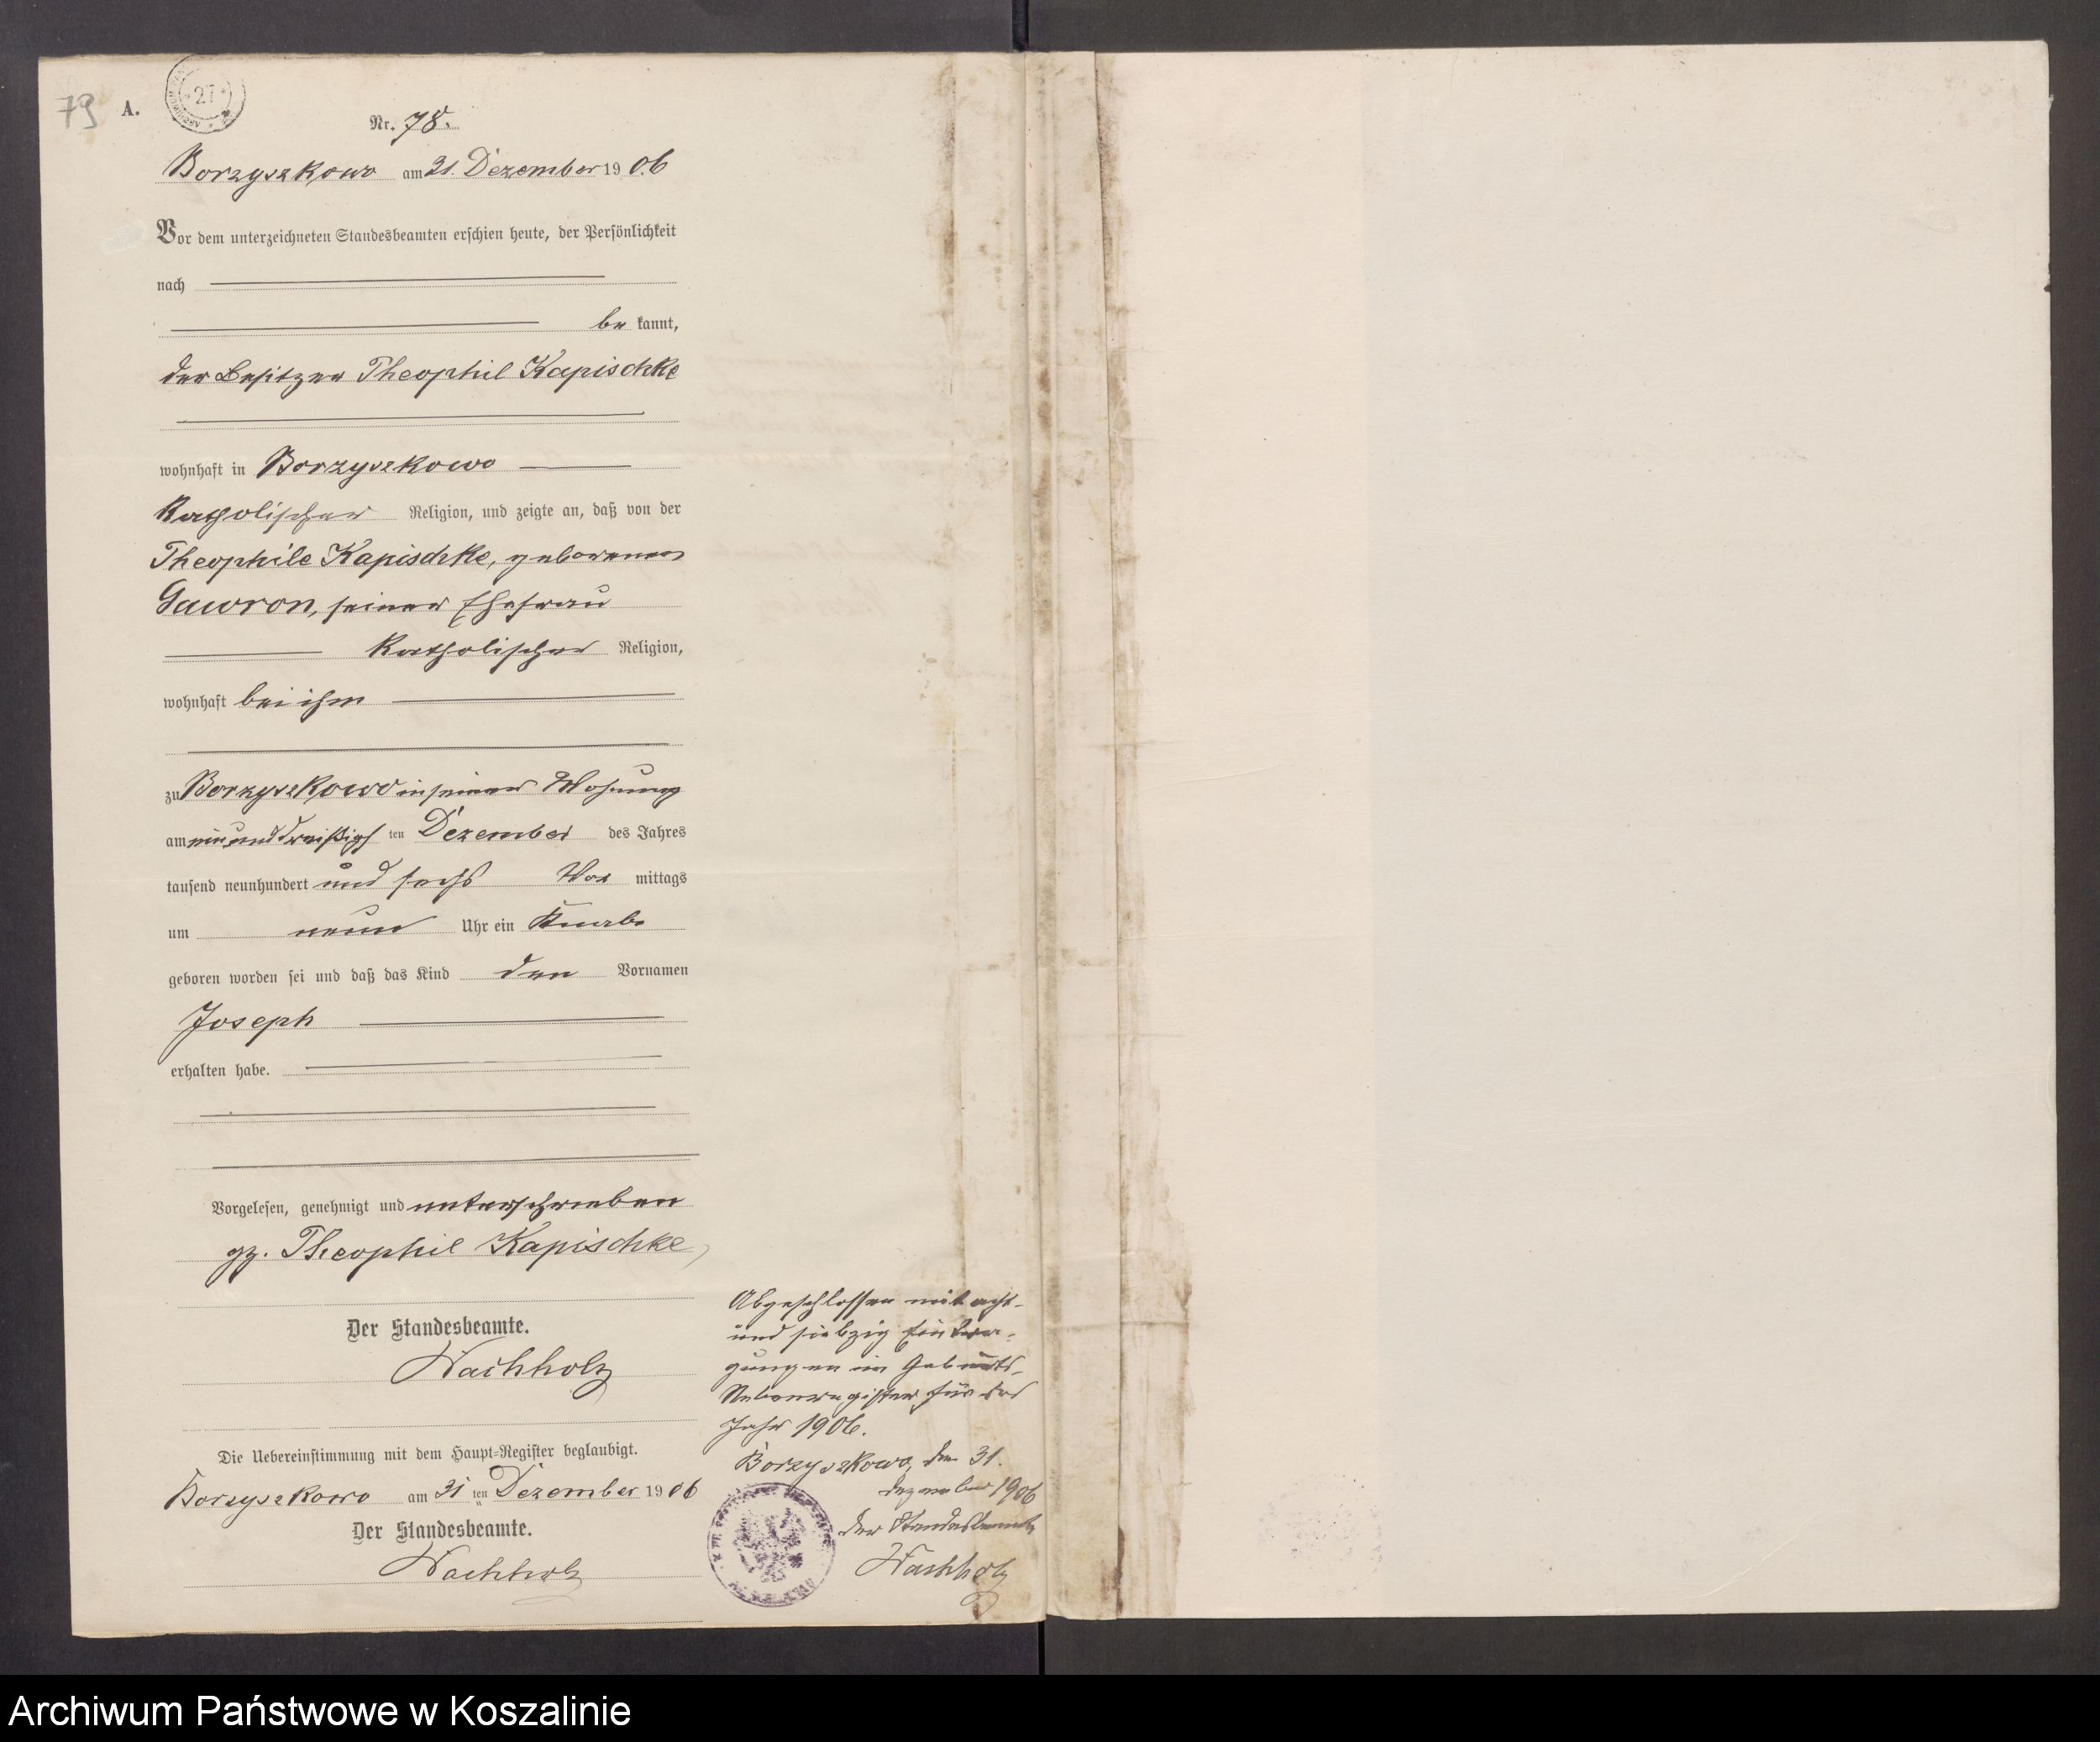 79
A.
27
Nr. 78.
Borzyszkowo am 31. Dezember 1906
Vor dem unterzeichneten Standesbeamten erschien heute, der Persönlichkeit
nach
be kannt,
der Besitzer Theophil Kapischke
wohnhaft in Borzyszkowo
katholischer Religion, und zeigte an, daß von der
Theophile Kapischke, geborenen
Gawron, seiner Ehefrau
katholischer Religion,
wohnhaft bei ihm
zu Borzyszkowo in seiner Wohnung
am einunddreißigs ten Dezember des Jahres
tausend neunhundert und sechs Vor mittags
um neun Uhr ein Knabe
geboren worden sei und daß das Kind den Vornamen
Joseph
erhalten habe.
Vorgelesen, genehmigt und unterschrieben
gz. Theophil Kapischke
Der Standesbeamte.
Wachholz
Die Uebereinstimmung mit dem Haupt-Register beglaubigt.
Borzyszkowo am 31 ten Dezember 1906
Der Standesbeamte.
Wachholz
Abgeschlossen mit acht-
und siebzig Eintra-
gungen im Geburts-
Nebenregister für das
Jahr 1906.
Borzyszkowo, den 31.
Dezember 1906
Der Standesbeamte
Wachholz
Archiwum Państwowe w Koszalinie